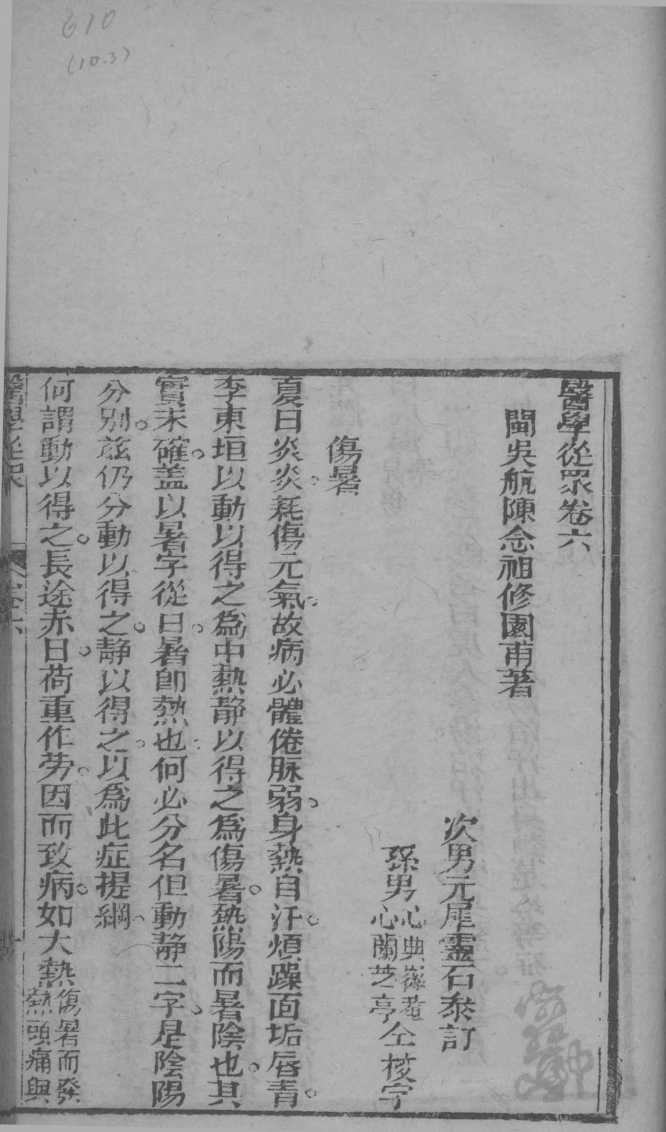 610
(10.3)
醫學從眾卷六
閩吳航陳念祖修園甫著
次男元犀靈石叅訂
孫男心典
心蘭芝亭仝校字
傷暑
夏日炎炎耗傷元氣故病必體倦脉弱身熱自汗煩躁面垢唇青
李東垣以動以得之為中熱靜以得之為傷暑熱陽而暑陰也其
實未確盖以暑字從日暑卽熱也何必分名但動靜二字是陰陽
分别兹仍分動以得之静以得之以為此症提綱
何謂動以得之長途赤日荷重作勞因而致病如大熱傷暑而發
熱頭痛與
醫學從眾
卷六